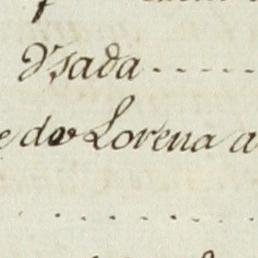 Vsada
e de Lorena a